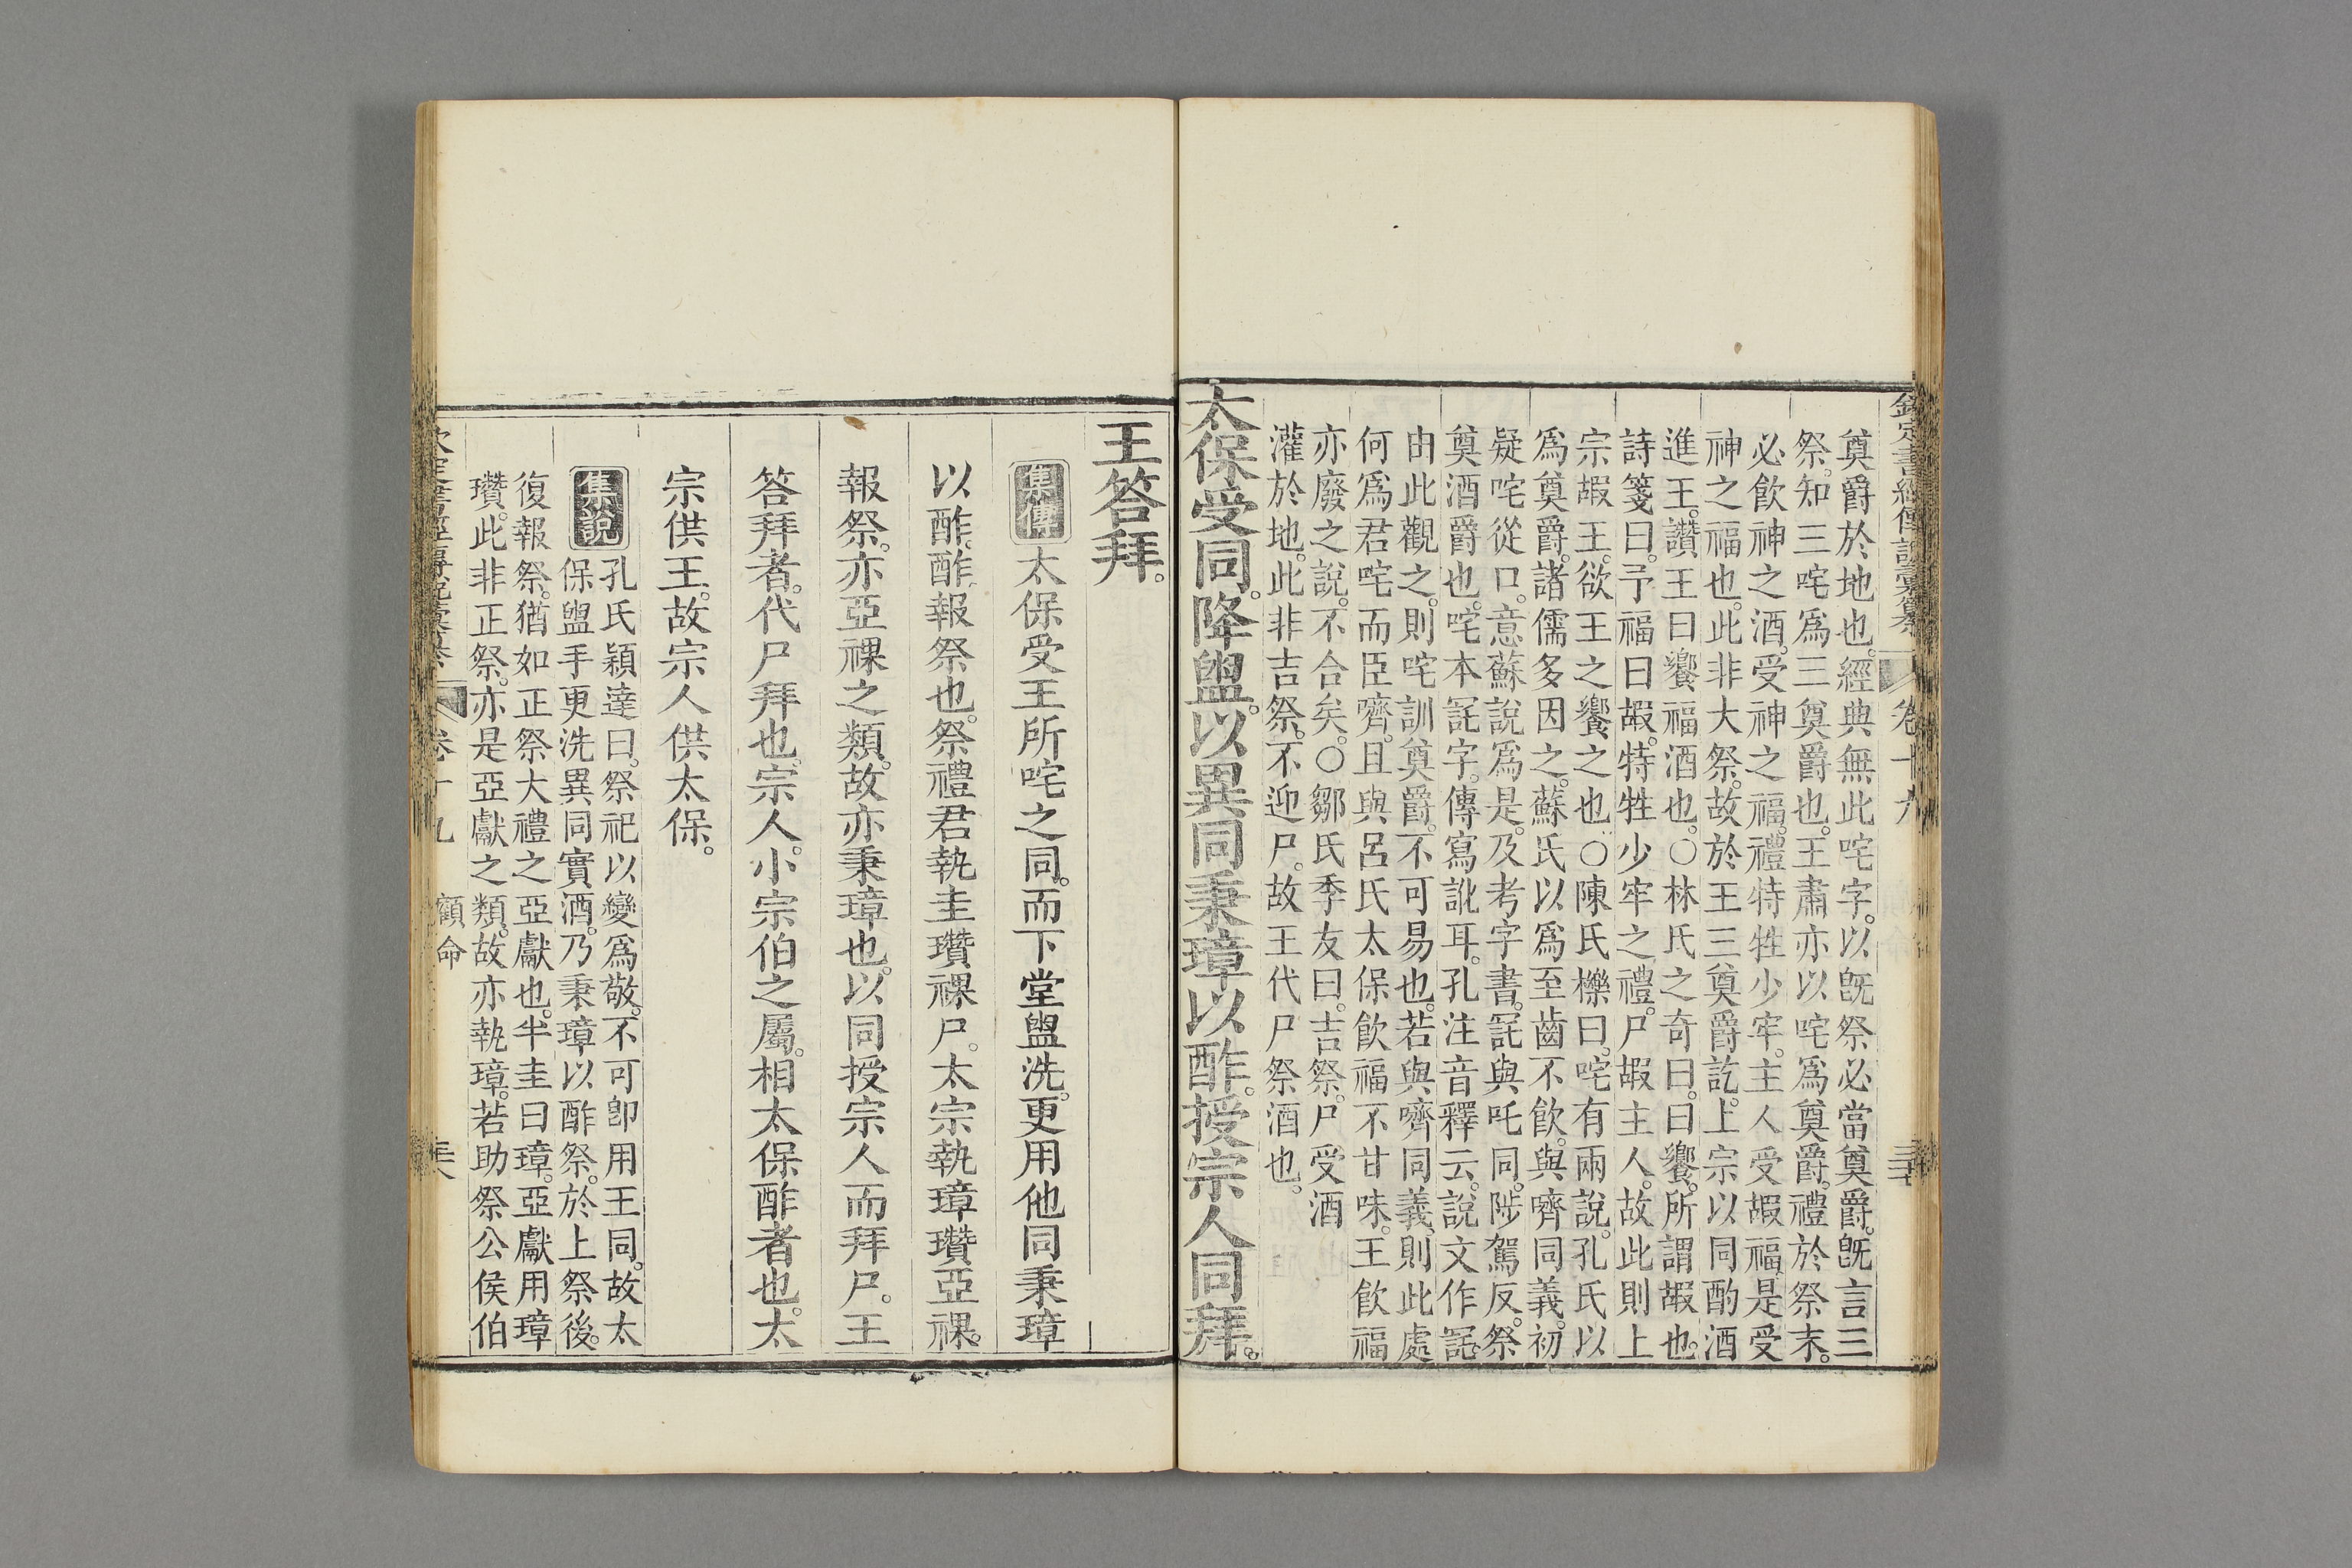 欽定書經傳說彙纂 卷十九
奠爵於地也。經典無此咤字。以旣祭必當奠爵。旣言三
祭。知三咤爲三奠爵也。王肅亦以咤爲奠爵。禮於祭末。
必飮神之酒。受神之福。禮特牲少牢。主人受嘏福。是受
神之福也。此非大祭。故於王三奠爵訖。上宗以同酌酒
進王。讚王曰饗福酒也。○林氏之奇曰。曰饗。所謂嘏也。
詩箋曰。予福曰嘏。特牲少牢之禮。尸嘏主人。故此則上
宗嘏王。欲王之饗之也。○陳氏櫟曰。咤有兩說。孔氏以
爲奠爵。諸儒多因之。蘇氏以爲至齒不飮。與嚌同義。初
疑咤從口。意蘇說爲是。及考字書。冟與吒同。陟駕反。祭
奠酒爵也。咤本冟字。傳寫訛耳。孔注音釋云。說文作冟。
由此觀之。則咤訓奠爵。不可易也。若與嚌同義。則此處
何爲君咤而臣嚌。且與呂氏太保飮福不甘味。王飮福
亦廢之說。不合矣。○鄒氏季友曰。吉祭。尸受酒
灌於地。此非吉祭。不迎尸。故王代尸祭酒也。
太保受同。降盥。以異同秉璋以酢。授宗人同拜。
王答拜。
集傳 太保受王所咤之同。而下堂盥洗。更用他同秉璋
以酢。酢。報祭也。祭禮君執圭瓚祼尸。太宗執璋瓚亞祼。
報祭。亦亞祼之類。故亦秉璋也。以同授宗人而拜尸。王
答拜者。代尸拜也。宗人。小宗伯之屬。相太保酢者也。太
宗供王。故宗人供太保。
集說 孔氏穎達曰。祭祀以變爲敬。不可卽用王同。故太
保盥手更洗異同實酒。乃秉璋以酢祭。於上祭後。
復報祭。猶如正祭大禮之亞獻也。半圭曰璋。亞獻用璋
瓚。此非正祭。亦是亞獻之類。故亦執璋。若助祭公侯伯
卷十九 顧命